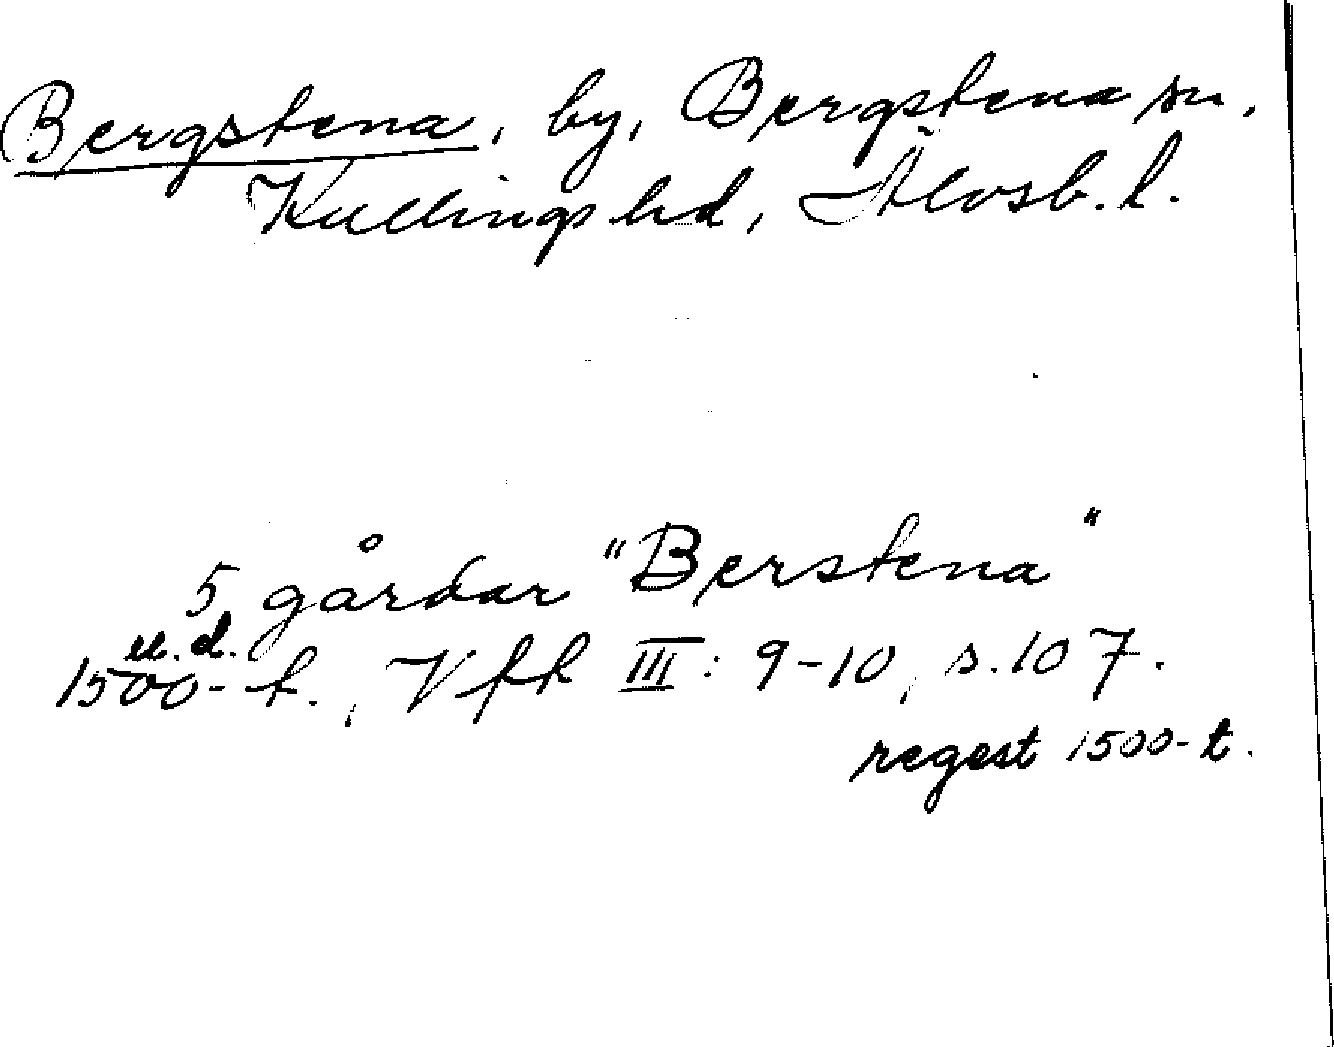 Bergstena, by, Bergstena sn,
Kullings hd, Älvsb. l.
5 gårdar "Berstena"
u. d.
1500-t., Vfft III: 9-10, s. 107.
regest 1500-t.